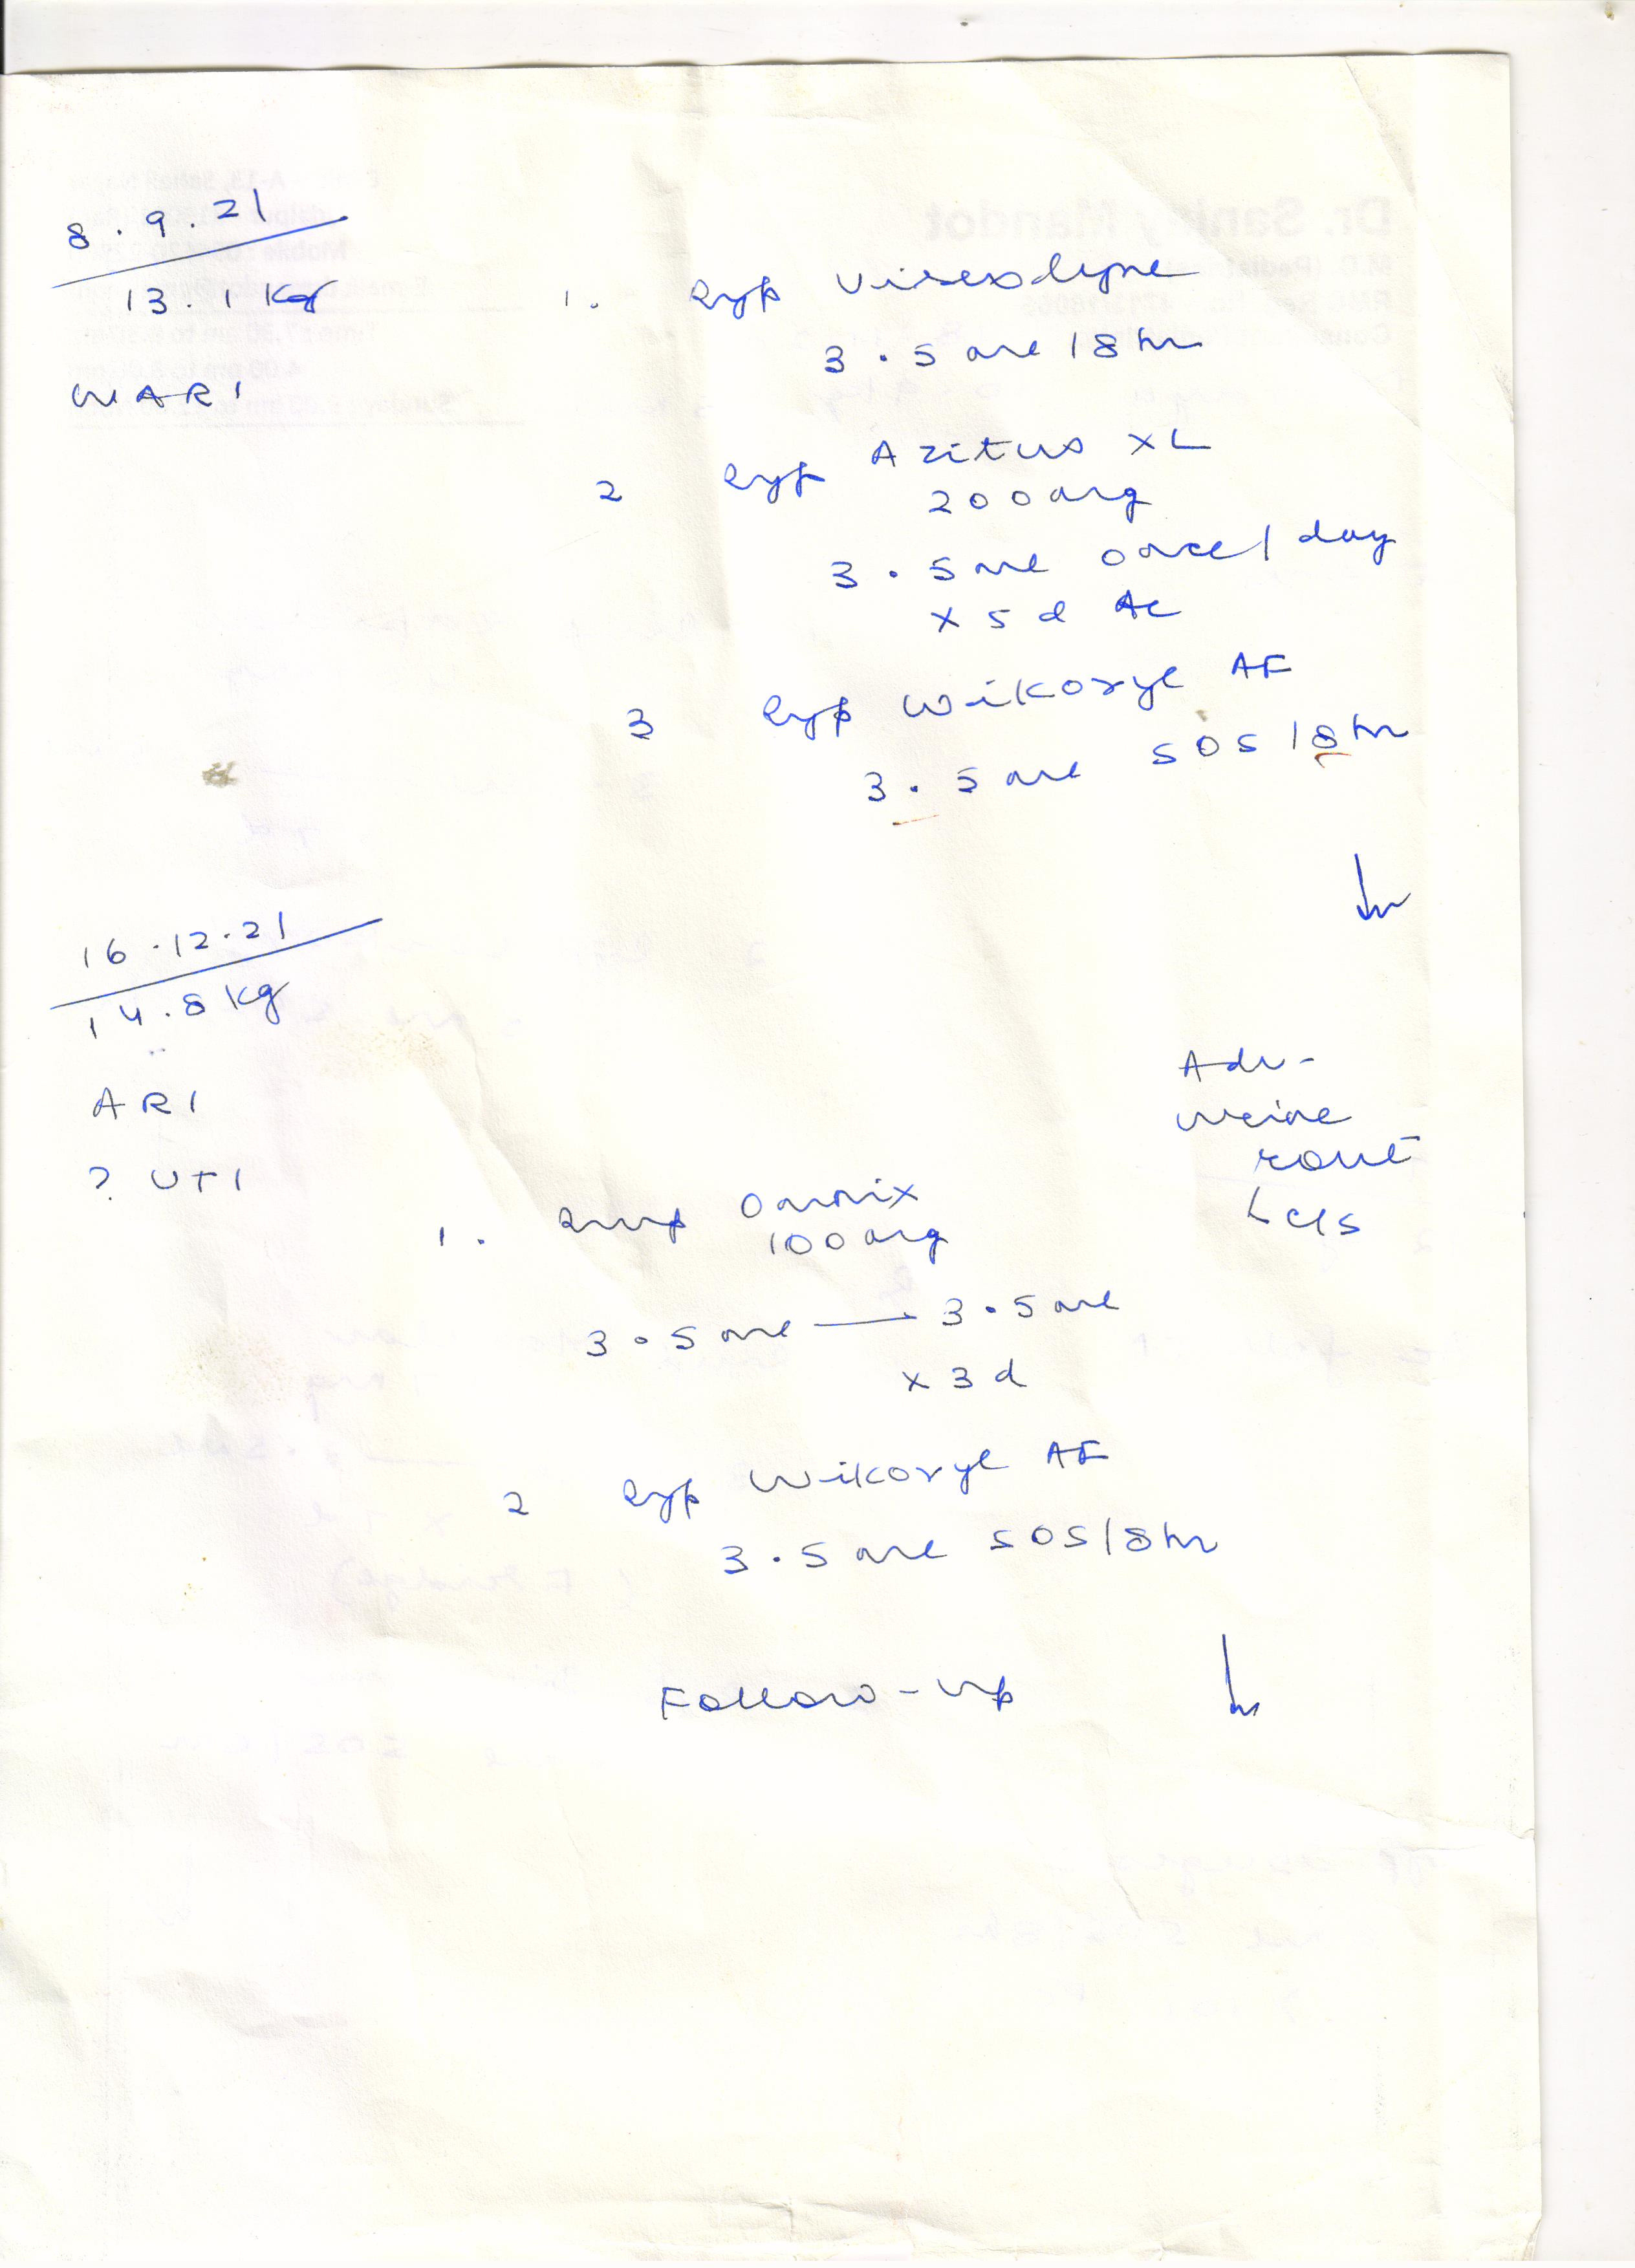 8.9.21
13.1 Kg
WARI
1. Syp Viscodyne
3.5 ml / 8 hr
2 Syp Azitus XL
200 mg
3.5 ml once / day
x 5 d AC
3 Syp Wikoryl AF
3.5 ml SOS / 8 hr
16.12.21
14.8 kg
ARI
? UTI
Adv-
urine
rout
c/s
1. Susp Omnix
100 mg
3.5 ml — 3.5 ml
x 3 d
2 Syp Wikoryl AF
3.5 ml SOS / 8 hr
Follow-up